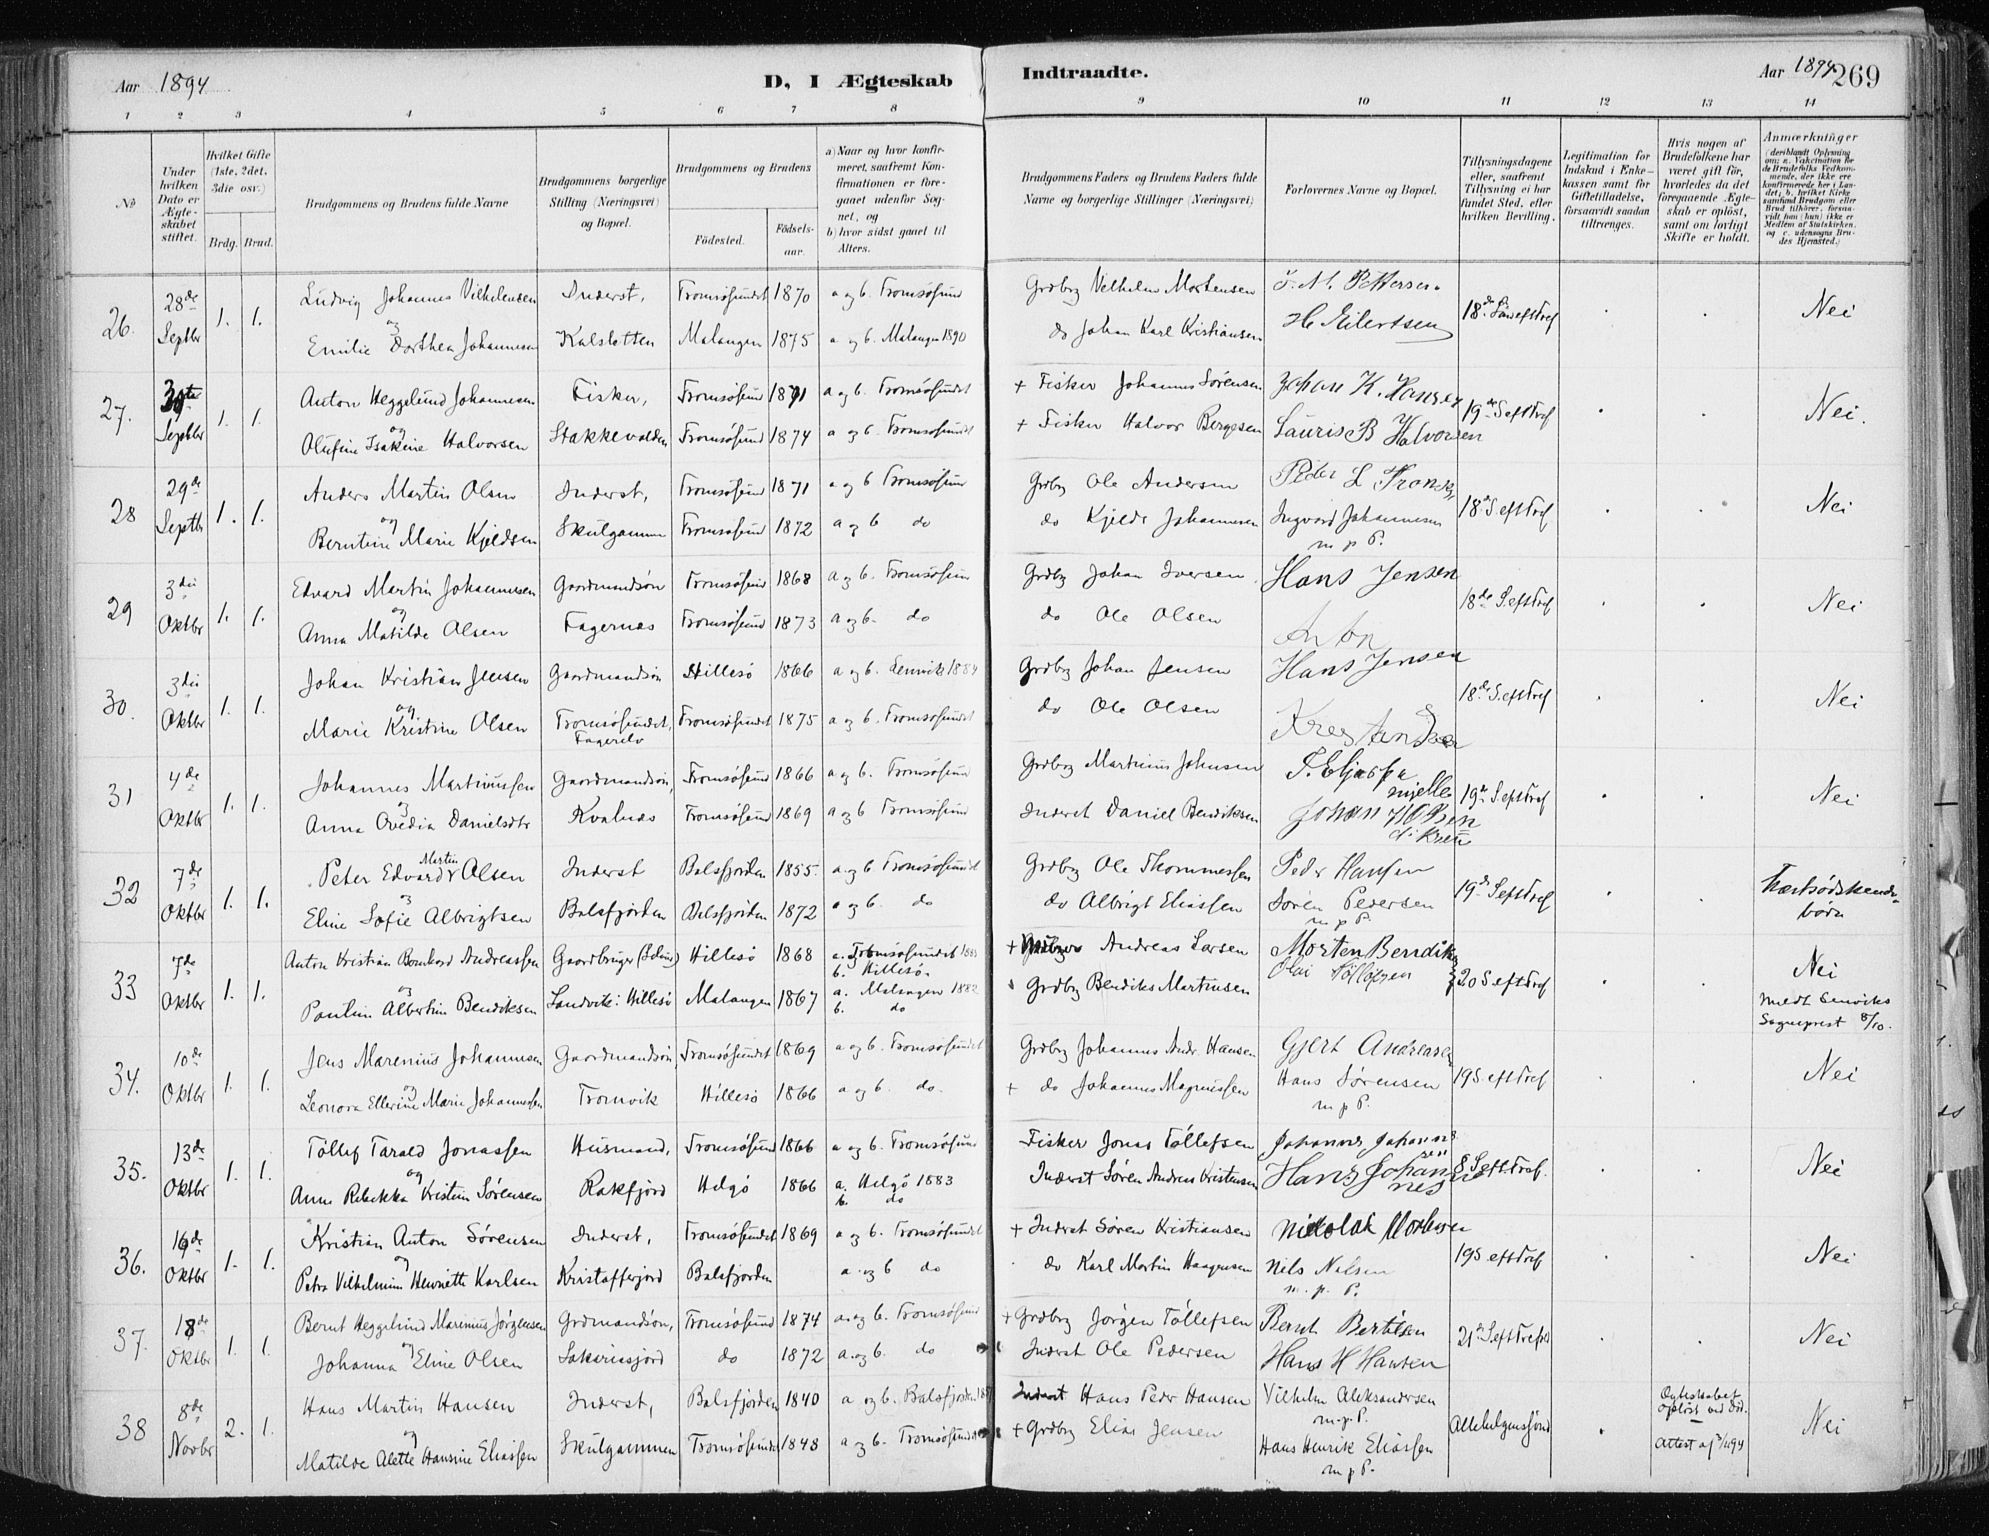 Aar 1894
D, I Ægteskab
Indtraadte.
Aar 1894
269
1 2 3 4 5 6 7 8 9 10 11 12 13 14
No
Under hvilken Dato er Ægteskabet stiftet.
Hvilket Gifte (1ste, 2det, 3die osv.)
Brdg. Brud.
Brudgommens og Brudens fulde Navne
Brudgommens borgerlige Stilling (Næringsvei) og Bopæl.
Brudgommens og Brudens
Fødested.
Fødselsaar.
a) Naar og hvor konfirmeret, saafremt Konfirmationen er foregaaet udenfor Sognet, og
b) hvor sidst gaaet til Alters.
Brudgommens Faders og Brudens Faders fulde Navne og borgerlige Stillinger (Næringsvei)
Forlovernes Navne og Bopæl.
Tillysningsdagene eller, saafremt Tillysning ei har fundet Sted, efter hvilken Bevilling.
Legitimation for Indskud i Enkekassen samt for Giftetilladelse, forsaavidt saadan tiltrænges.
Hvis nogen af Brudefolkene har været gift før, hvorledes da det foregaaende Ægteskab er opløst, samt om lovligt Skifte er holdt.
Anmærkninger (deriblandt Oplysning om: a. Vakcination for de Brudefolks Vedkommende, der ikke ere konfirmerede her i Landet; b. hvilket Kirkesamfund Brudgom eller Brud tilhører, forsaavidt han (hun) ikke er Medlem af Statskirken, og c. udensogns Brudes Hjemsted.)
26. 28de Septbr 1. 1. Ludvig Johannes Vilhelmsen Inderst, Tromsøsundet 1870 a og b. Tromsøsund Grdbrg Velhelm Mortensen Pettersen 18de S eft Tref Nei
og
Emilie Dorthea Johannesen Kalslotten Malangen 1875 a og b. Malangen 1890 do Johan Karl Kristiansen H Eilertsen
27. Septbr 1. 1. Anton Heggelund Johannesen Fisker, Tromsøsund 1871 a og b. Tromsøsundet + Fisker Johannes Sørensen Johan K. Hansen 19de S eft Tref Nei.
og
Olufine Isakine Halvorsen Stakkevolden Tromsøsund 1874 a og b. Tromsøsundet + Fisker Halvor Bergesen Lauris B Halvorsen
28 29de Septbr 1. 1. Anders Martin Olsen Inderst, Tromsøsund 1871 a og b Tromsøsund Grdbrg Ole Andersen Peder L 18de S eft Tref Nei
og
Berntine Marie Kjeldsen Skulgammen Tromsøsund 1872 a og b do do Kjeld Johannesen Ingvard Johannesen
m p P.
29 3die Oktbr 1. 1. Edvard Martin Johannesen Gaardmandsøn Tromsøsund 1868 a og b. Tromsøsun Grdbrg Johan Iversen Hans Jensen 18de S eft Tref Nei
og
Anna Matilde Olsen Fagernes Tromsøsund 1873 a og b. do do Ole Olsen Anton
30. 3die Oktbr 1. 1. Johan Kristian Jensen Gaardmandsøn Hillesø 1866 a og b. Lenvik 1884 Grdbrg Johan Jensen Hans Jensen 18de S eft Tref Nei
og
Marie Kristine Olsen Tromsøsundet, Tromsøsundet 1875 a og b. Tromsøsundet do Ole Olsen
31 4de Oktbr 1. 1. Johannes Martinussen Gaardmandsøn, Tromsøsund 1866 a og b. Tromsøsund Grdbrg Martinus Johnsen 19de S eft Tref Nei
og
Anna Ovedia Danielsdtr Kvalnæs Tromsøsund 1869 a og b Tromsøsund Inderst Daniel Bendiksen Johan
32 7de Oktbr 1. 1. Peter Edvard Martin Olsen Inderst Balsfjorden 1855. a og b Tromsøsundet Grdbrg Ole Thommessen Peder Hansen 19de S eft Tref Tvertsødskendebørn
og
Eline Sofie Albrigtsen Balsfjorden Balsfjorden 1872 a og b. do do Albrigt Eliassen Søren Pedersen
m p P.
33 7de Oktbr 1. 1. Anton Kristian Bernhard Andreassen Gaardbruger Hillesø 1868 a. Tromsøsundet 1883 b. Hillesø. + Andreas Larsen Morten Bendik 20 S eft Tref Nei
og
Pauline Albertine Bendiksen Landvik i Hillesø Malangen 1867 a. Malangen 1882 b. do Grdbrg Bendiks Martinsen meldt Lenviks Sogneprest 8/10.
34. 10de Oktbr 1. 1. Jens Marenius Johannesen Gaardmandsøn, Tromsøsundet 1869 a og b. Tromsøsundet Grdbrg Johannes Andr. Hansen Gjert Andreasen 19 S eft Tref Nei
og
Leonora Ellerine Marie Johannessen Tromvik Hillesø 1866 a og b. do. + do Johannes Magnussen Hans Sørensen
m p P.
35. 13de Oktbr 1. 1. Tøllef Tarald Jonassen Husmand, Tromsøsund 1866 a og b. Tromsøsund Fisker Jonas Tøllefsen Johannes Johannsen S eft Tref. Nei
og
Anne Rebekka Kristine Sørensen Rakfjord Helgø 1866 a. Helgø 1883 b. do Inderst Søren Andreas Kristensen Hans Johannes
36. Oktbr 1. 1. Kristian Anton Sørensen Inderst, Tromsøsundet 1869 a og b. Tromsøsundet + Inderst Søren Kristiansen Nikolai 19 S eft Tref Nei
og
Petra Vilhelmine Henriette Karlsen Kristofferjord Balsfjorden a og b do do Karl Martin Haagensen Nils Nilsen
m. p. P.
37. 18de Oktbr 1. 1. Bernt Heggelund Marenius Jørgensen Grdmandsøn, Tromsøsund 1874 a og b. Tromsøsund + Grdbrg Jørgen Tøllefsen Bernt Bertilsen 21de S eft Trefs Nei
og
Johanna Eline Olsen Sakariasjord do 1872 a og b. do Inderst Ole Pedersen Hans H Hansen
38 8de Novbr 2. 1. Hans Martin Hansen Inderst, Balsfjorden 1840 a og b. Balsfjorden Inderst Hans Peder Hansen Vilhelm Aleksandersen Allehelgenssønd Egteskabet opløst ved Død. Nei
og m.p.P.
Matilde Alette Hansine Eliassen Skulgammen Tromsøsundet 1848 a og b. Tromsøsundet + Grdbrg Elias Jensen Hans Henrik Eliassen Attest af
m p P.